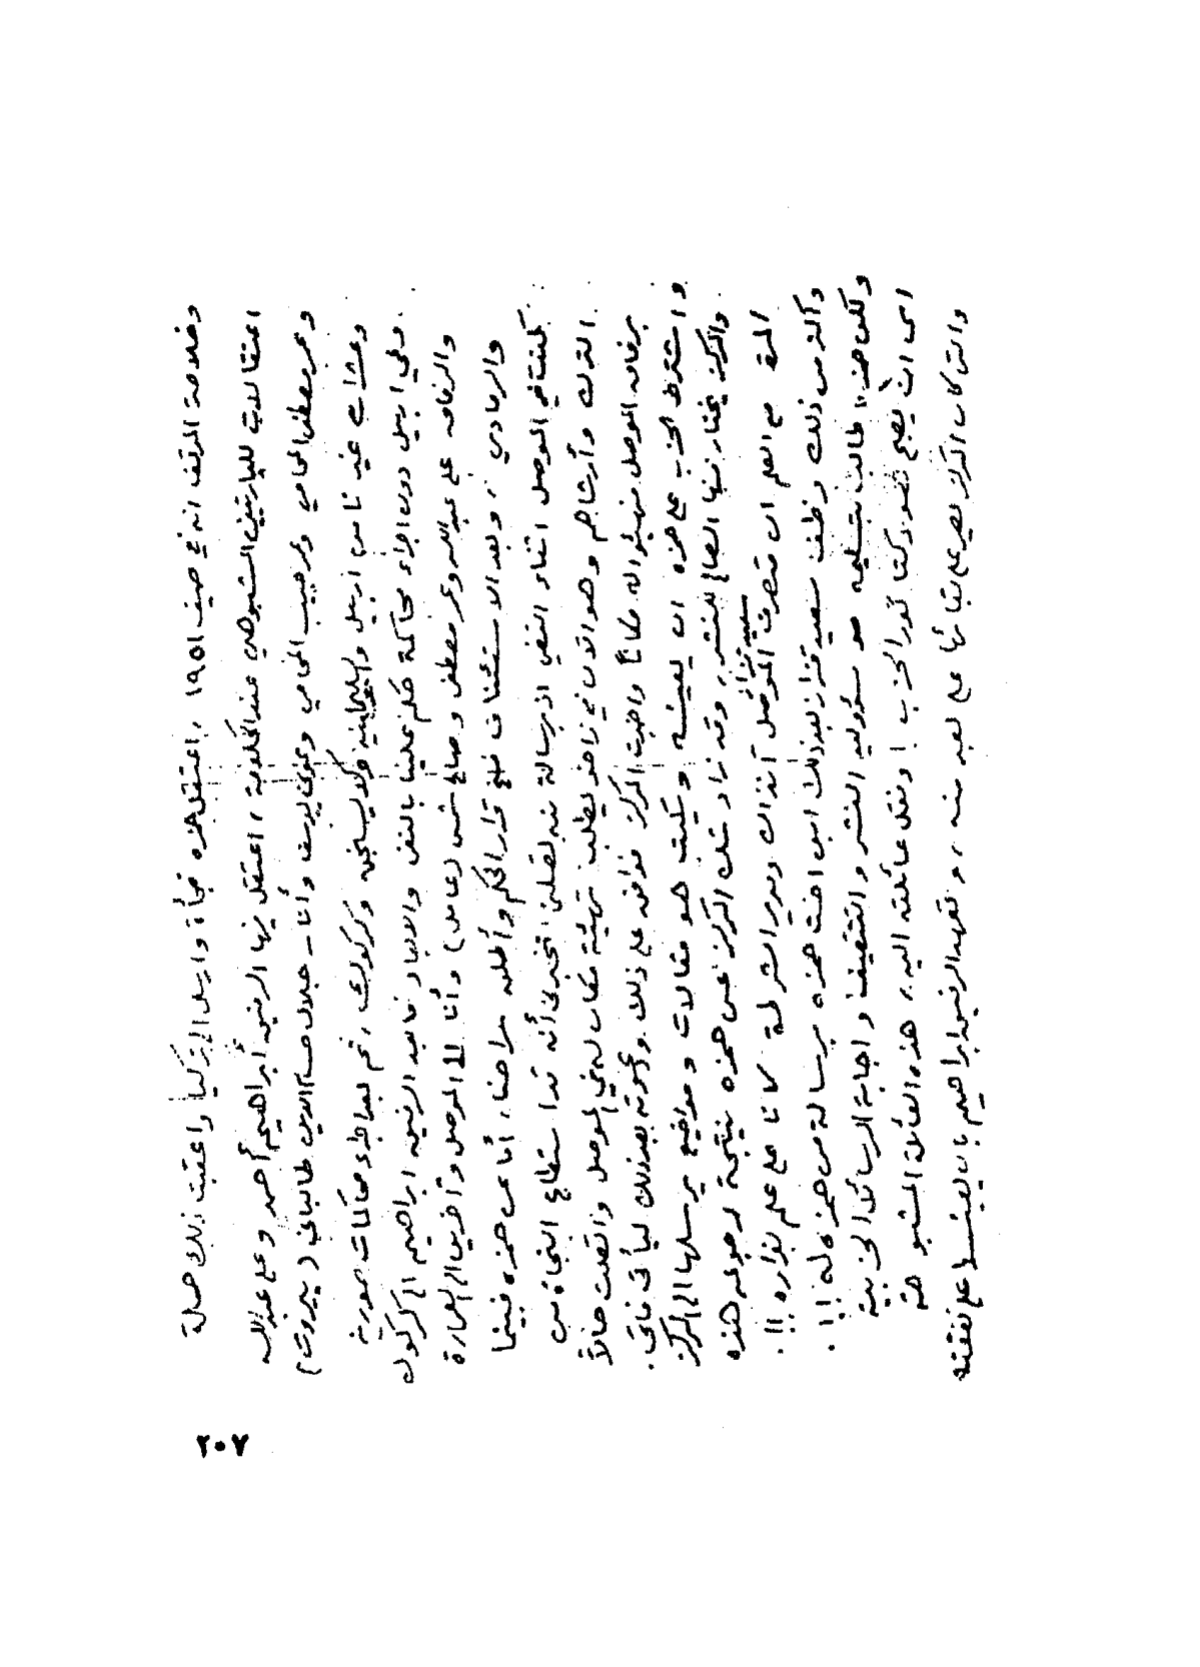 وخلاصة الموقف انه في صيف ١٩٥١ ، اعتقل حمزه فجأة وارسل الى تركيا واعقبت ذلك حملة
اعتقالات للپارتيين المشبوهين عند الحكومة ، اعتقل فيها الرفيق أبراهيم أحمد وعلي عبدالله
وعمر مصطفى المحامي وعمر حبيب المحامي وعوني يوسف وأنا ـ جلال حسام الدين طالباني ( بيروت )
وعشرات غيرنا من اربيل والسليمانية وكركوك ، ثم بعد اجراء محاكمات صورية
وفي اربيل دون اجراء محاكمة حكم علينا بالنفي والابعاد فابعد الرفيق ابراهيم الى كركوك
والرفاق علي عبدالله وعمر مصطفى وصالح ( عامل ) وأنا الى الموصل وآخرين الى العمارة
والرمادي ، وبعد الاستئناف فسخ قرار الحكم وأطلق سراحنا ، أما عن حمزه فبينما
كنت في الموصل اثناء النفي اذ برسالة منه تصلني تخبرني أنه قد استطاع النجاة من
الترك وأرشاهم وهو الآن في زاخو يطلب تهيئة مكان له في الموصل واتصلت حالاً
برفاق الموصل فهيئوا له مكاناً واخبرت المركز فوافق على ذلك ودعوته بعد ذلك ليأتي فأتى .
واشترط الحزب على حمزه ان يعيشه ويكتب هو مقالات ومواضيع يرسلها الى المركز
والمركز يختار منها الصالح للنشر ، وقد زاد شك المركز عن حمزه نتيجة رجوعه هذه
المرة مع العلم ان متصرف الموصل سعيد قزاز آنذاك ومدير الشرطة كانا على علم بفراره !! .
وأكثر من ذلك وظف سعيد قزاز بعد ذلك ابن اخت حمزه برسالة من حمزه له !! .
ولكن حمزه طالب بتسليمه مسؤولية النشر والتثقيف واجابة الرسائل الحزبية
اى ان يصبح هو دكتاتور الحزب ! ونقل عائلته اليه ، هذه العائلة المشبوهة
والتي كان المركز يصر على بقائها على بعد منه ، وتعهد الرفيق ابراهيم بأن يعيشها على نفقته
٢٠٧